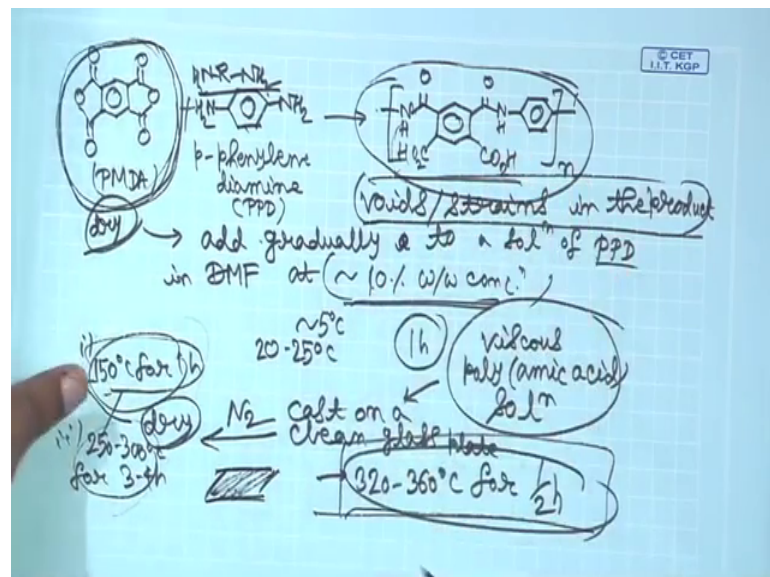 © CET
I.I.T. KGP
H₂N-R-NH₂
H₂N NH₂
(PMDA)
p-phenylene
diamine
(PPD)
O O
N N
H H
HO₂C CO₂H
n
voids/strains in the product
dry → add gradually to a solⁿ of PPD
in DMF at ~ 10% w/w concⁿ
~5°C
20-25°C
1h
viscous
poly(amic acid)
solⁿ
i) 150°C for 1h
N₂ cast on a
clean glass plate
dry
ii) 250-300°C
for 3-4h
320-360°C for 1/2h